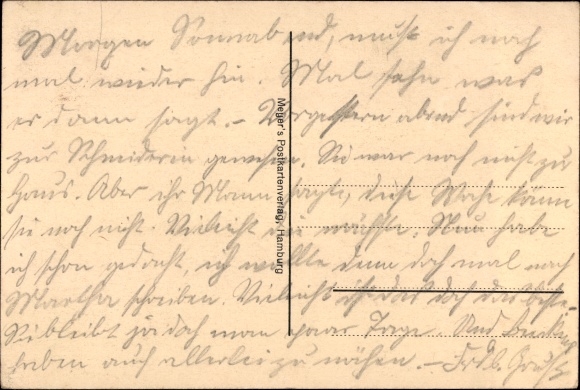 Morgen Sonnabend, muß ich noch
mal wieder hin. Mal sehn was
er dann sagt. – Vorgestern abend sind wir
zur Schneiderin gewesen. Sie war noch nicht zu
Haus. Aber ihr Mann sagte, diese Woche könne
sie noch nicht. Vieleicht die nächste. Nun habe
ich schon gedacht, ich wollte denn doch mal nach
Martha schreiben. Vieleicht ist das doch das beste.
Sie bleibt ja doch man paar Tage. Und
haben auch allerlei zu nähen. –
Meyer's Postkartenverlag, Hamburg